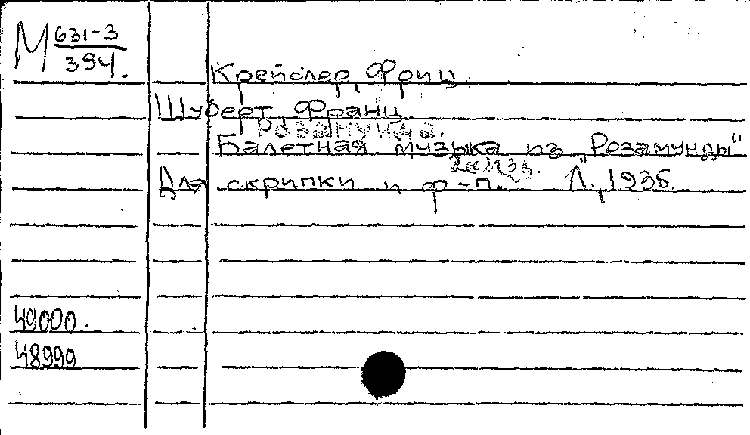 М 631-3
394.
Крейслер, Фриц
Шуберт, Франц.
Розамунда.
Балетная музыка из "Розамунды"
Для скрипки и ф-п. Л., 1936.
49000.
48999